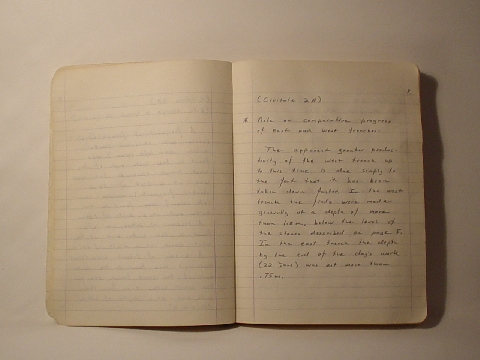 (Civitale 2A)
* Note on comparative progress
of East and West trenches:
The apparent greater produc-
tivity of the west trench up
to this time is due simply to
the fact that it has been
taken down faster. In the west
trench the finds were made
at a depth of more
than below the level of
the stones described on page 5.
In the east trench the depth
by the end of the day's work
(22 June) was not more than
.75m.